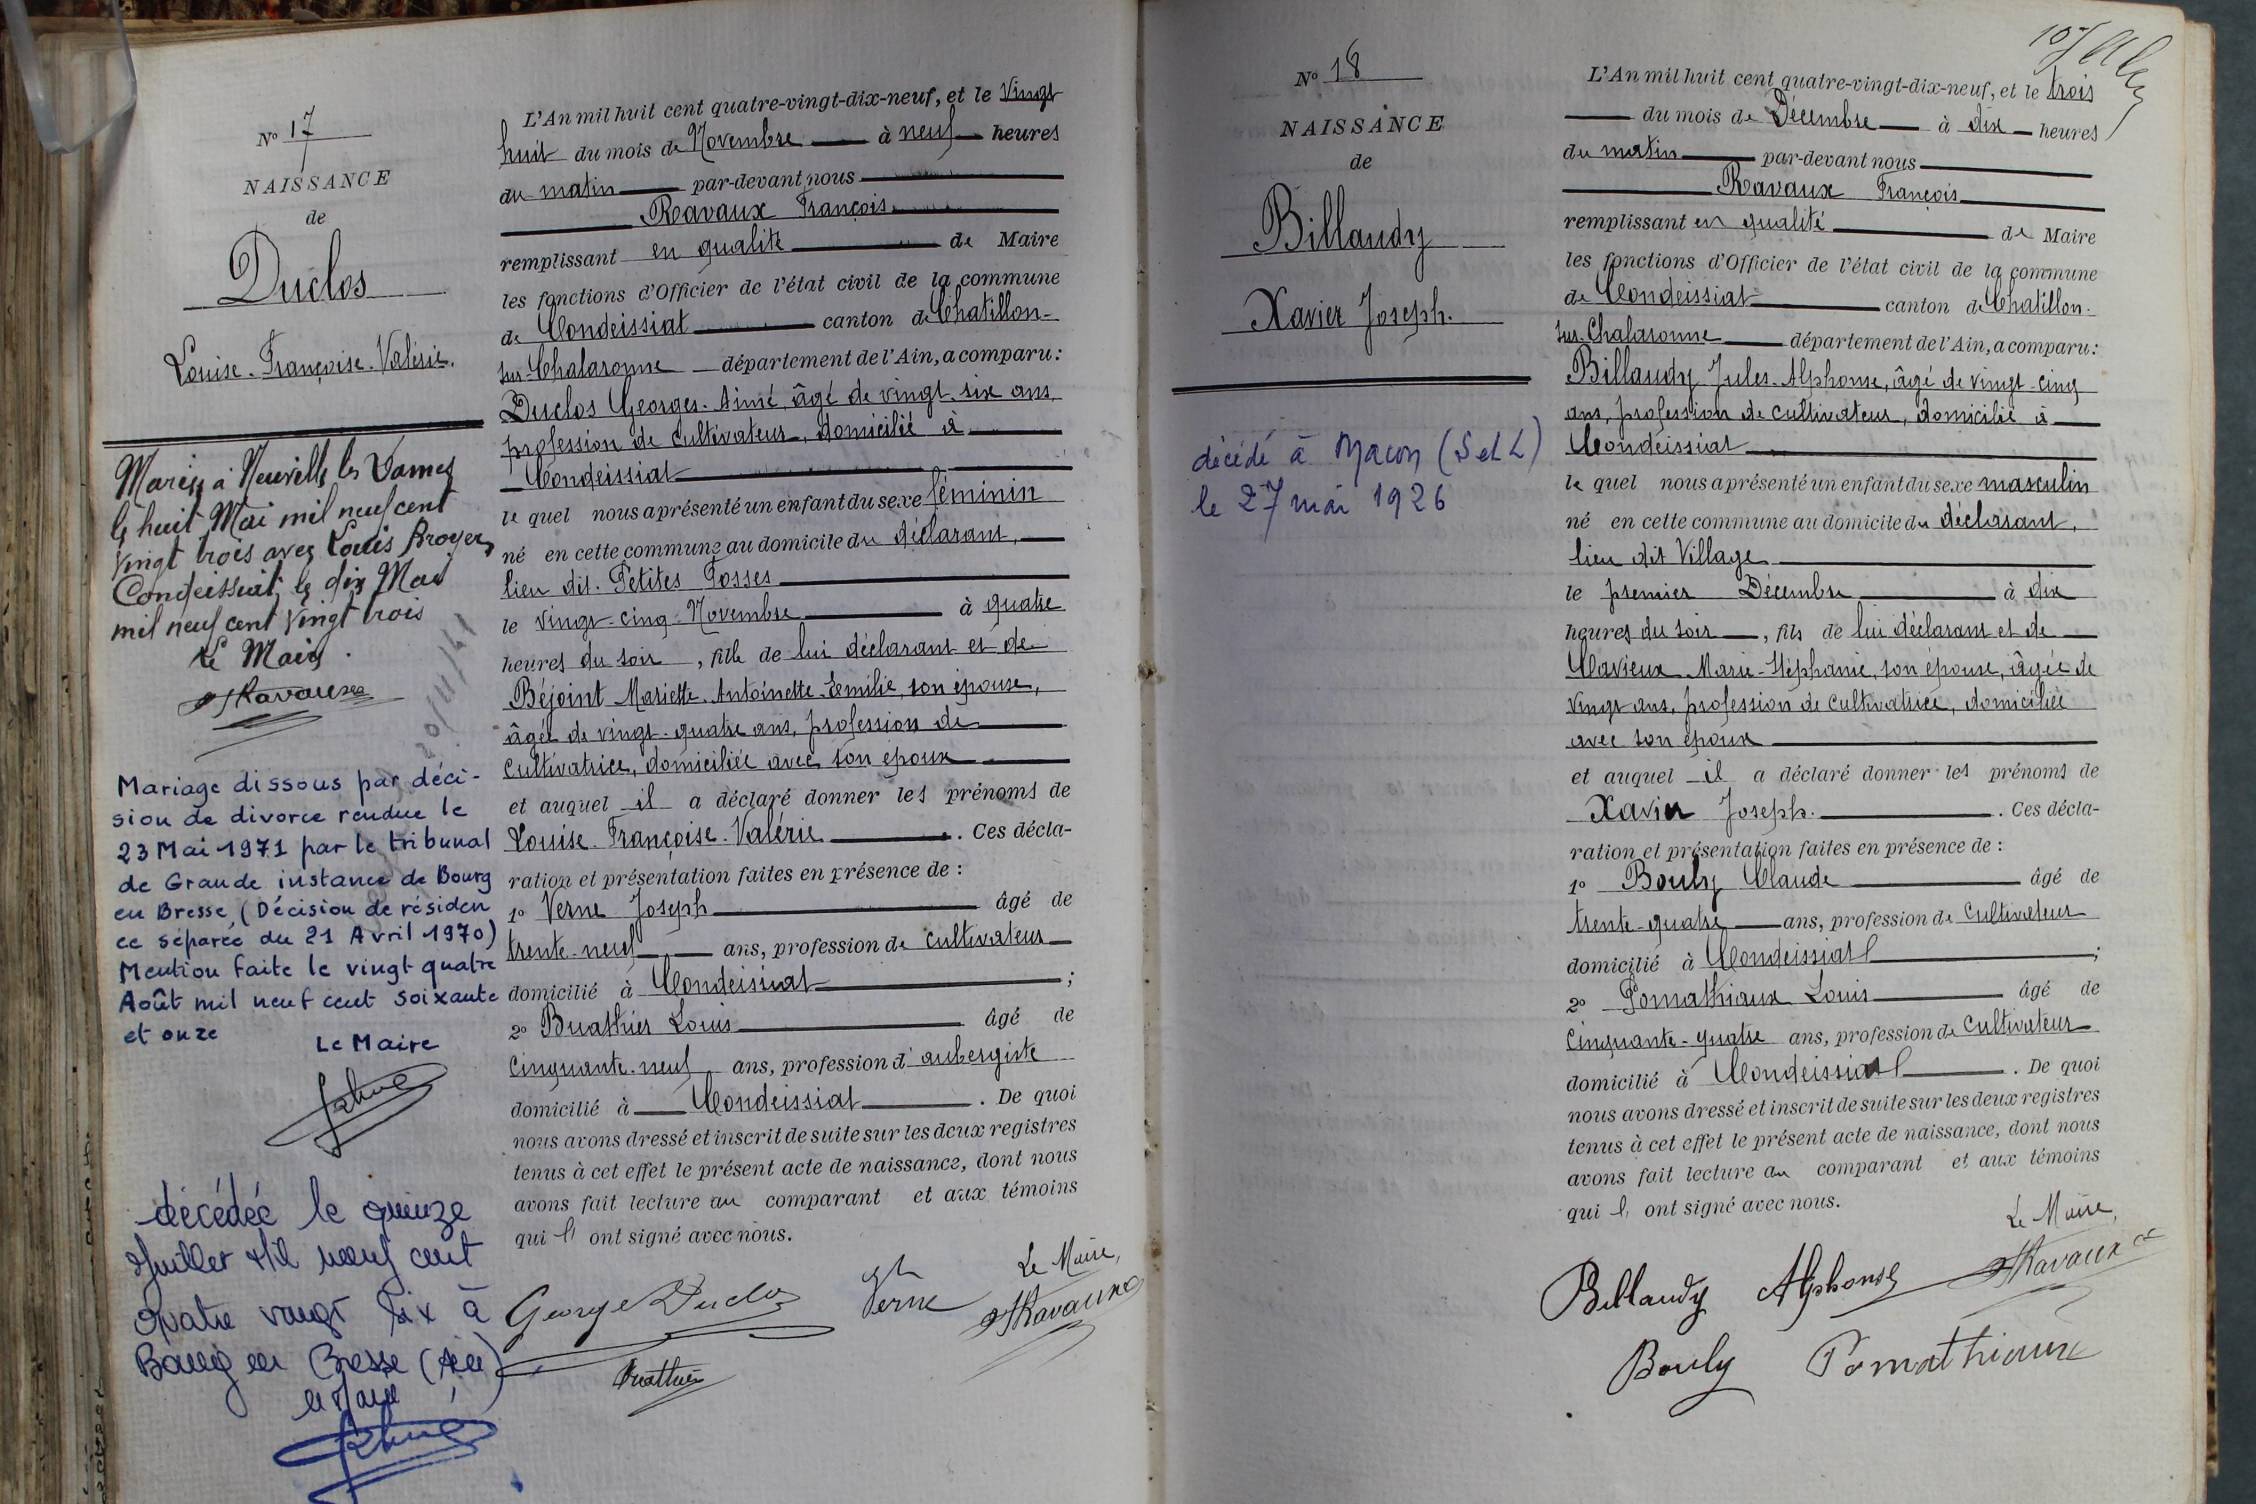 N° 17
NAISSANCE
de
Duclos
Louise-Françoise-Valérie.
Mariée à Neuville les Dames
le huit Mai mil neuf cent
vingt trois avec Louis Broyer
Condeissiat, le dix Mai
mil neuf cent vingt trois
Le Maire.
Ravaux
Mariage dissous par déci-
sion de divorce rendue le
23 Mai 1971 par le tribunal
de Grande instance de Bourg
en Bresse (Décision de résiden
ce séparée du 21 Avril 1970)
Mention faite le vingt quatre
Août mil neuf cent soixante
et onze
Le Maire
décédée le quinze
Juillet Mil neuf cent
quatre vingt six à
Bourg en Bresse (Ain)
le Maire
L'An mil huit cent quatre-vingt-dix-neuf, et le Vingt
huit du mois de Novembre à neuf heures
du matin par-devant nous
Ravaux François
remplissant en qualité de Maire
les fonctions d'Officier de l'état civil de la commune
de Condeissiat canton de Chatillon-
sur-Chalaronne département de l'Ain, a comparu :
Duclos Georges-Aimé, âgé de vingt-six ans,
profession de cultivateur, domicilié à
Condeissiat
le quel nous a présenté un enfant du sexe féminin
né en cette commune au domicile du déclarant,
lieu dit. Petites Fosses
le vingt-cinq Novembre à quatre
heures du soir, fille de lui déclarant et de
Béjoint Mariette-Antoinette-Emilie, son épouse,
âgée de vingt-quatre ans, profession de
cultivatrice, domiciliée avec son époux
et auquel il a déclaré donner les prénoms de
Louise-Françoise-Valérie. Ces décla-
ration et présentation faites en présence de :
1° Verne Joseph âgé de
trente-neuf ans, profession de cultivateur
domicilié à Condeissiat ;
2° Buathier Louis âgé de
cinquante-neuf ans, profession d'aubergiste
domicilié à Condeissiat. De quoi
nous avons dressé et inscrit de suite sur les deux registres
tenus à cet effet le présent acte de naissance, dont nous
avons fait lecture au comparant et aux témoins
qui l' ont signé avec nous.
Le Maire,
George Duclos Verne Ravaux
Buathier
N° 18
NAISSANCE
de
Billaudy
Xavier Joseph.
décédé à Macon (S et L)
le 27 mai 1926
L'An mil huit cent quatre-vingt-dix-neuf, et le trois
du mois de Décembre à dix heures
du matin par-devant nous
Ravaux François
remplissant en qualité de Maire
les fonctions d'Officier de l'état civil de la commune
de Condeissiat canton de Chatillon-
sur-Chalaronne département de l'Ain, a comparu :
Billaudy Jules-Alphonse, âgé de vingt-cinq
ans, profession de cultivateur, domicilié à
Condeissiat
le quel nous a présenté un enfant du sexe masculin
né en cette commune au domicile du déclarant,
lieu dit Village
le premier Décembre à dix
heures du soir, fils de lui déclarant et de
Clavieux Marie-Stéphanie, son épouse, âgée de
vingt ans, profession de cultivatrice, domiciliée
avec son époux
et auquel il a déclaré donner les prénoms de
Xavier Joseph. Ces décla-
ration et présentation faites en présence de :
1° Bouly Claude âgé de
trente-quatre ans, profession de cultivateur
domicilié à Condeissiat ;
2° Pomathiaux Louis âgé de
cinquante-quatre ans, profession de cultivateur
domicilié à Condeissiat. De quoi
nous avons dressé et inscrit de suite sur les deux registres
tenus à cet effet le présent acte de naissance, dont nous
avons fait lecture au comparant et aux témoins
qui l' ont signé avec nous.
Le Maire,
Billaudy Alphonse Ravaux
Bouly Pomathiaux